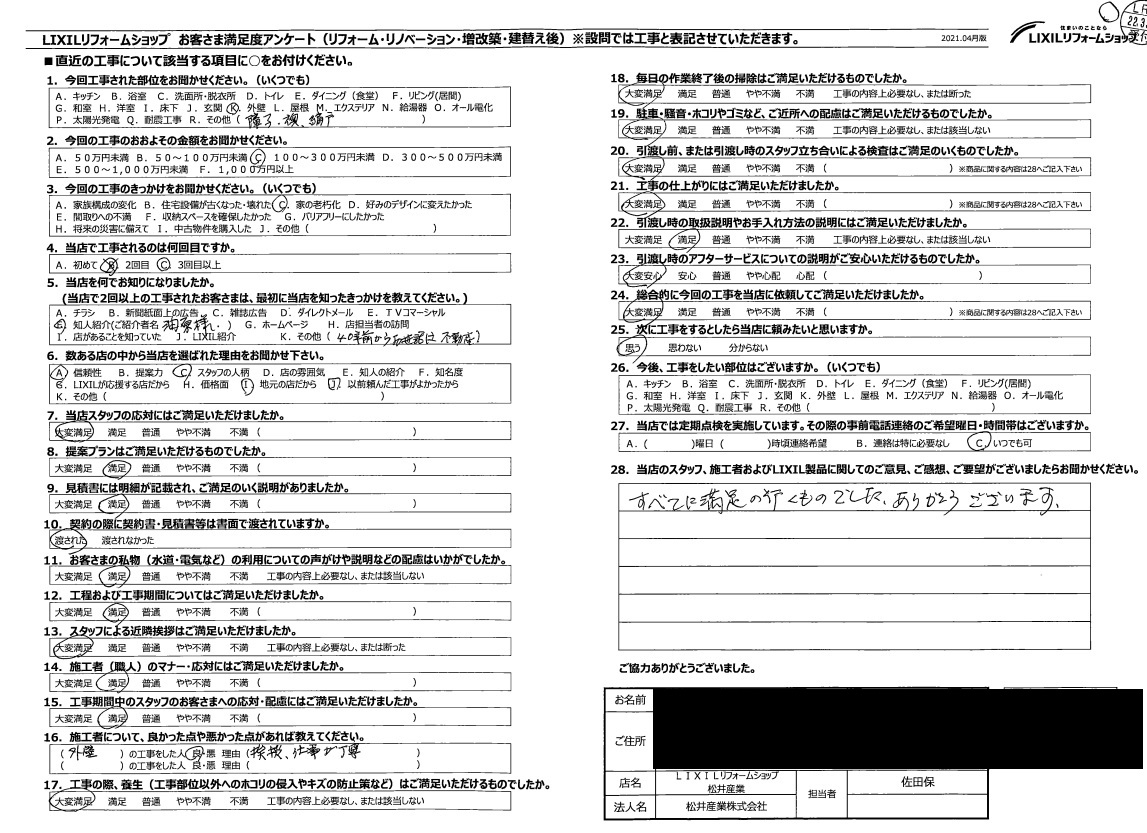 LIXILリフォームショップ お客さま満足度アンケート（リフォーム・リノベーション・増改築・建替え後）※設問では工事と表記させていただきます。
2021.04月版
住まいのことなら
LIXILリフォームショップ
22.3.
■直近の工事について該当する項目に○をお付けください。
1．今回工事された部位をお聞かせください。（いくつでも）
A．キッチン B．浴室 C．洗面所・脱衣所 D．トイレ E．ダイニング（食堂） F．リビング(居間)
G．和室 H．洋室 I．床下 J．玄関 K．外壁 L．屋根 M．エクステリア N．給湯器 O．オール電化
P．太陽光発電 Q．耐震工事 R．その他（ 障子、襖、網戸 ）
2．今回の工事のおおよその金額をお聞かせください。
A．50万円未満 B．50～100万円未満 C．100～300万円未満 D．300～500万円未満
E．500～1,000万円未満 F．1,000万円以上
3．今回の工事のきっかけをお聞かせください。（いくつでも）
A．家族構成の変化 B．住宅設備が古くなった・壊れた C．家の老朽化 D．好みのデザインに変えたかった
E．間取りへの不満 F．収納スペースを確保したかった G．バリアフリーにしたかった
H．将来の災害に備えて I．中古物件を購入した J．その他（ ）
4．当店で工事されるのは何回目ですか。
A．初めて B．2回目 C．3回目以上
5．当店を何でお知りになりましたか。
（当店で2回以上の工事されたお客さまは、最初に当店を知ったきっかけを教えてください。）
A．チラシ B．新聞紙面上の広告 C．雑誌広告 D．ダイレクトメール E．TVコマーシャル
F．知人紹介(ご紹介者名 様・) G．ホームページ H．店担当者の訪問
I．店があることを知っていた J．LIXIL紹介 K．その他（40年前から 不動産）
6．数ある店の中から当店を選ばれた理由をお聞かせ下さい。
A．信頼性 B．提案力 C．スタッフの人柄 D．店の雰囲気 E．知人の紹介 F．知名度
G．LIXILが応援する店だから H．価格面 I．地元の店だから J．以前頼んだ工事がよかったから
K．その他（ ）
7．当店スタッフの応対にはご満足いただけましたか。
大変満足 満足 普通 やや不満 不満（ ）
8．提案プランはご満足いただけるものでしたか。
大変満足 満足 普通 やや不満 不満（ ）
9．見積書には明細が記載され、ご満足のいく説明がありましたか。
大変満足 満足 普通 やや不満 不満（ ）
10．契約の際に契約書・見積書等は書面で渡されていますか。
渡された 渡されなかった
11．お客さまの私物（水道・電気など）の利用についての声がけや説明などの配慮はいかがでしたか。
大変満足 満足 普通 やや不満 不満 工事の内容上必要なし、または該当しない
12．工程および工事期間についてはご満足いただけましたか。
大変満足 満足 普通 やや不満 不満（ ）
13．スタッフによる近隣挨拶はご満足いただけましたか。
大変満足 満足 普通 やや不満 不満 工事の内容上必要なし、または断った
14．施工者（職人）のマナー・応対にはご満足いただけましたか。
大変満足 満足 普通 やや不満 不満（ ）
15．工事期間中のスタッフのお客さまへの応対・配慮にはご満足いただけましたか。
大変満足 満足 普通 やや不満 不満（ ）
16．施工者について、良かった点や悪かった点があれば教えてください。
（ 外壁 ）の工事をした人 良・悪 理由（挨拶、仕事が丁寧 ）
（ ）の工事をした人 良・悪 理由（ ）
17．工事の際、養生（工事部位以外へのホコリの侵入やキズの防止策など）はご満足いただけるものでしたか。
大変満足 満足 普通 やや不満 不満 工事の内容上必要なし、または該当しない
18．毎日の作業終了後の掃除はご満足いただけるものでしたか。
大変満足 満足 普通 やや不満 不満 工事の内容上必要なし、または断った
19．駐車・騒音・ホコリやゴミなど、ご近所への配慮はご満足いただけるものでしたか。
大変満足 満足 普通 やや不満 不満 工事の内容上必要なし、または該当しない
20．引渡し前、または引渡し時のスタッフ立ち合いによる検査はご満足のいくものでしたか。
大変満足 満足 普通 やや不満 不満（ ）※商品に関する内容は28へご記入下さい
21．工事の仕上がりにはご満足いただけましたか。
大変満足 満足 普通 やや不満 不満（ ）※商品に関する内容は28へご記入下さい
22．引渡し時の取扱説明やお手入れ方法の説明にはご満足いただけましたか。
大変満足 満足 普通 やや不満 不満 工事の内容上必要なし、または該当しない
23．引渡し時のアフターサービスについての説明がご安心いただけるものでしたか。
大変安心 安心 普通 やや心配 心配（ ）
24．総合的に今回の工事を当店に依頼してご満足いただけましたか。
大変満足 満足 普通 やや不満 不満（ ）※商品に関する内容は28へご記入下さい
25．次に工事をするとしたら当店に頼みたいと思いますか。
思う 思わない 分からない
26．今後、工事をしたい部位はございますか。（いくつでも）
A．キッチン B．浴室 C．洗面所・脱衣所 D．トイレ E．ダイニング（食堂） F．リビング(居間)
G．和室 H．洋室 I．床下 J．玄関 K．外壁 L．屋根 M．エクステリア N．給湯器 O．オール電化
P．太陽光発電 Q．耐震工事 R．その他（ ）
27．当店では定期点検を実施しています。その際の事前電話連絡のご希望曜日・時間帯はございますか。
A．（ ）曜日（ ）時頃連絡希望 B．連絡は特に必要なし C．いつでも可
28．当店のスタッフ、施工者およびLIXIL製品に関してのご意見、ご感想、ご要望がございましたらお聞かせください。
すべてに満足の行くものでした、ありがとうございます、
ご協力ありがとうございました。
お名前
ご住所
店名 LIXILリフォームショップ 松井産業 担当者 佐田保
法人名 松井産業株式会社